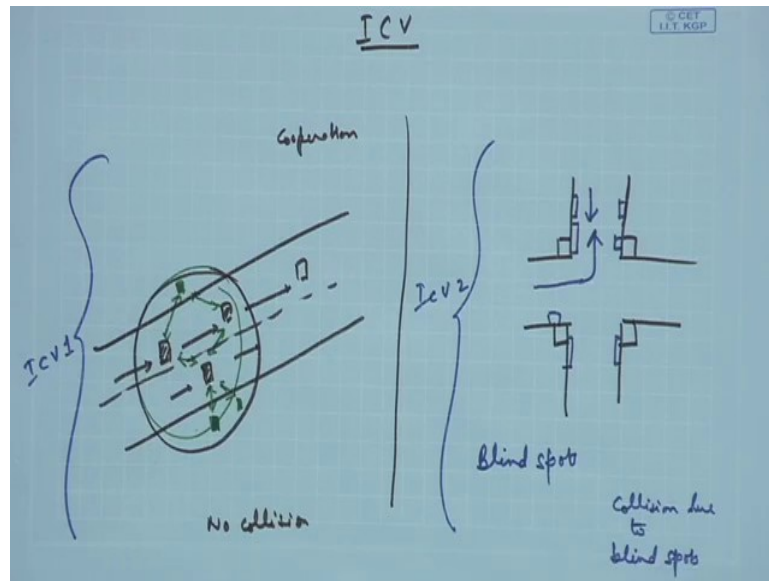 ICV
© CET
I.I.T. KGP
Cooperation
ICV1
No collision
ICV2
Blind spot
Collision due
to
blind spot